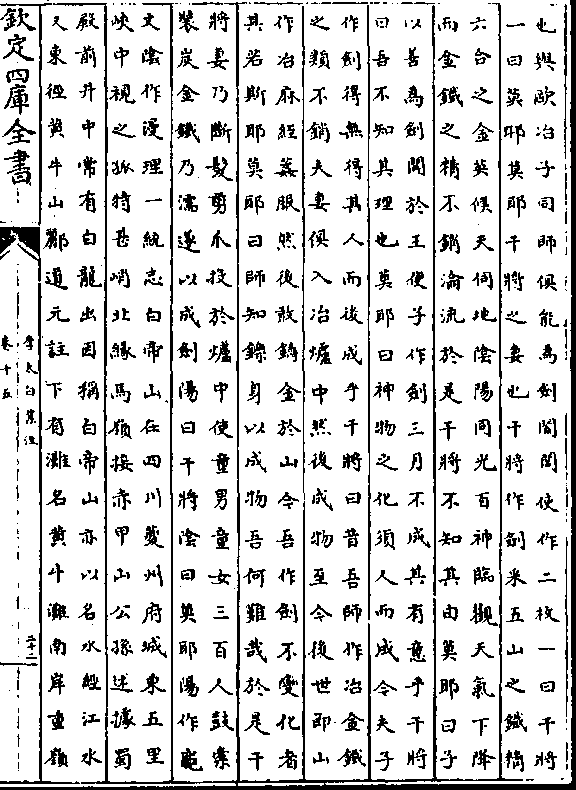 也與歐冶子同師俱能為劍闔閭使作二枚一曰干將
一曰莫耶莫耶干將之妻也干將作劍采五山之鐵精
六合之金英候天伺地陰陽同光百神臨觀天氣下降
而金鐵之精不銷淪流於是干將不知其由莫耶曰子
以善為劍聞於王使子作劍三月不成其有意乎干將
曰吾不知其理也莫耶曰神物之化須人而成今夫子
作劍得無得其人而後成乎干將曰昔吾師作冶金鐵
之類不銷夫妻俱入冶爐中然後成物至今後世即山
作冶麻絰葌服然後敢鑄金於山今吾作劍不變化者
其若斯耶莫耶曰師知鑠身以成物吾何難哉於是干
將妻乃斷髮剪爪投於爐中使童男童女三百人鼓橐
裝炭金鐵乃濡遂以成劍陽曰干將陰曰莫耶陽作龜
文陰作漫理一統志白帝山在四川夔州府城東五里
峽中視之孤特甚峭北緣馬嶺接赤甲山公孫述據蜀
殿前井中常有白龍出因稱白帝山亦以名水經江水
又東徑黃牛山酈道元註下有灘名黃牛灘南岸重嶺
欽定四庫全書
李太白集注
卷十五
二十二